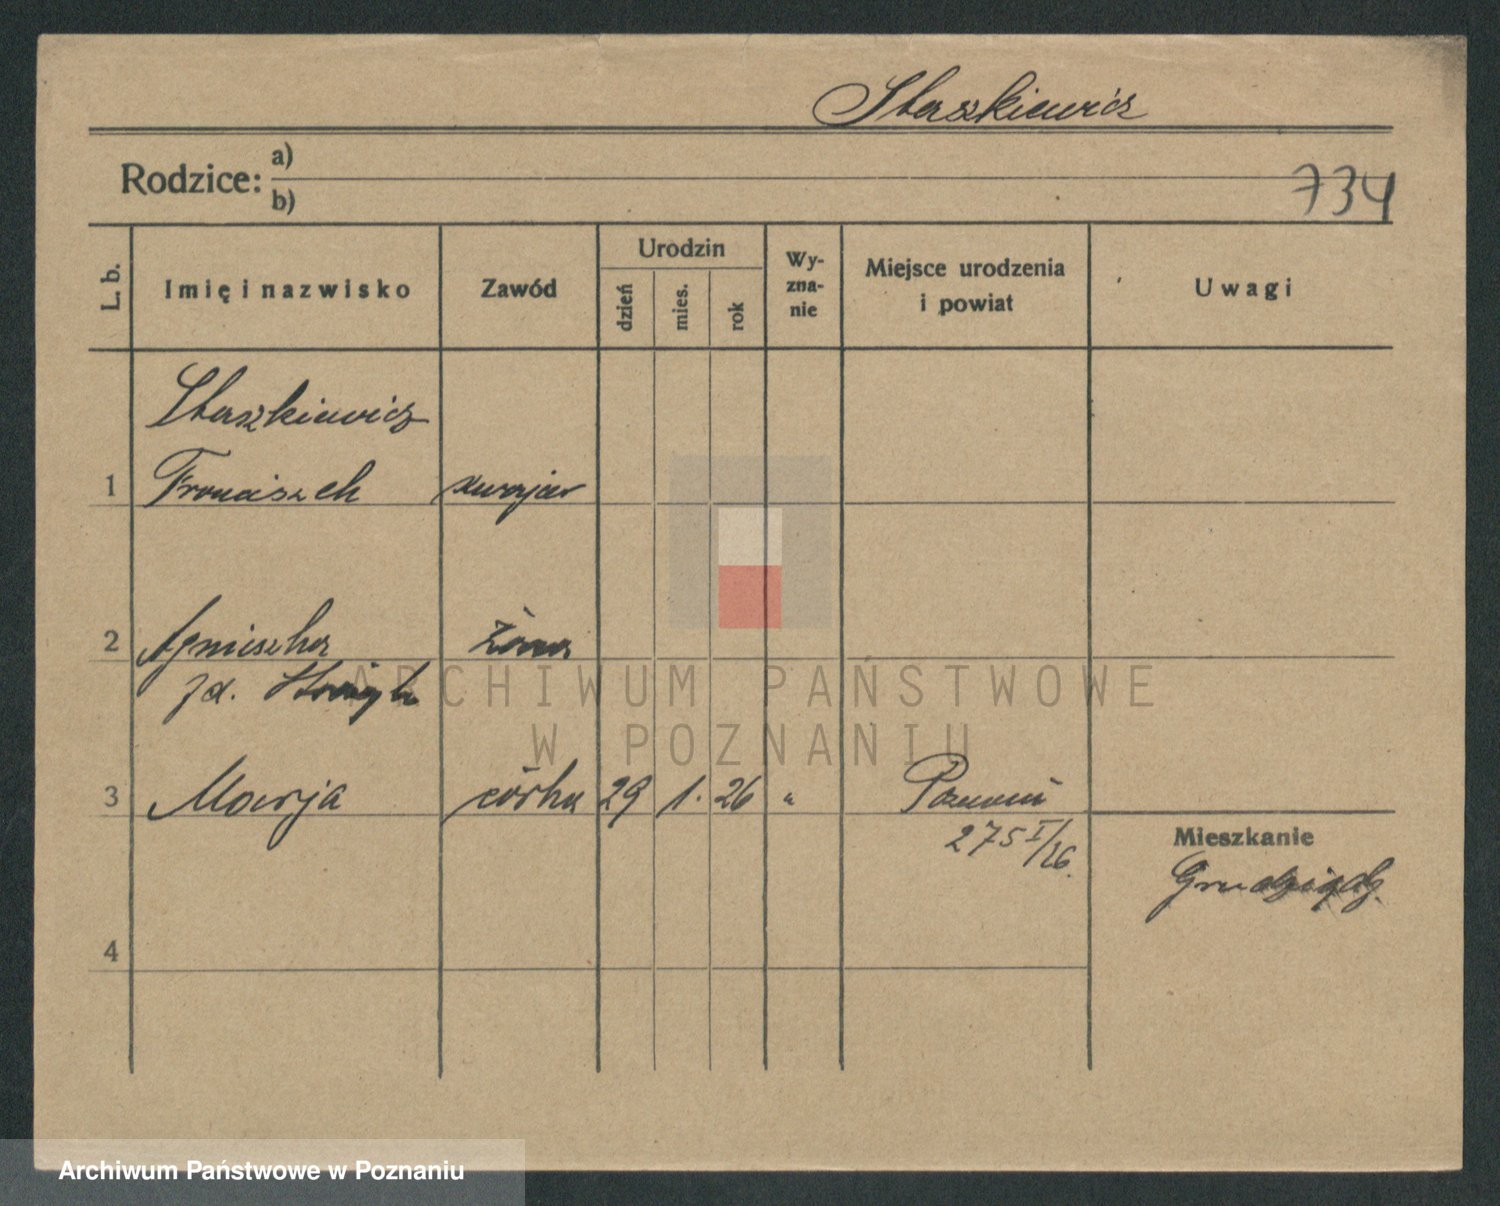 Staszkiewicz
Rodzice: a)
b)
734
L. b.
Imię i nazwisko
Zawód
Urodzin
dzień
mies.
rok
Wy-
zna-
nie
Miejsce urodzenia
i powiat
Uwagi
Staszkiewicz
1 Franciszek
2 Agnieszka żona
zd.
ARCHIWUM PAŃSTWOWE
W POZNANIU
3 Marja córka 29 1. 26 " Poznań
275 I/26.
Mieszkanie
Grudziądz.
4
Archiwum Państwowe w Poznaniu